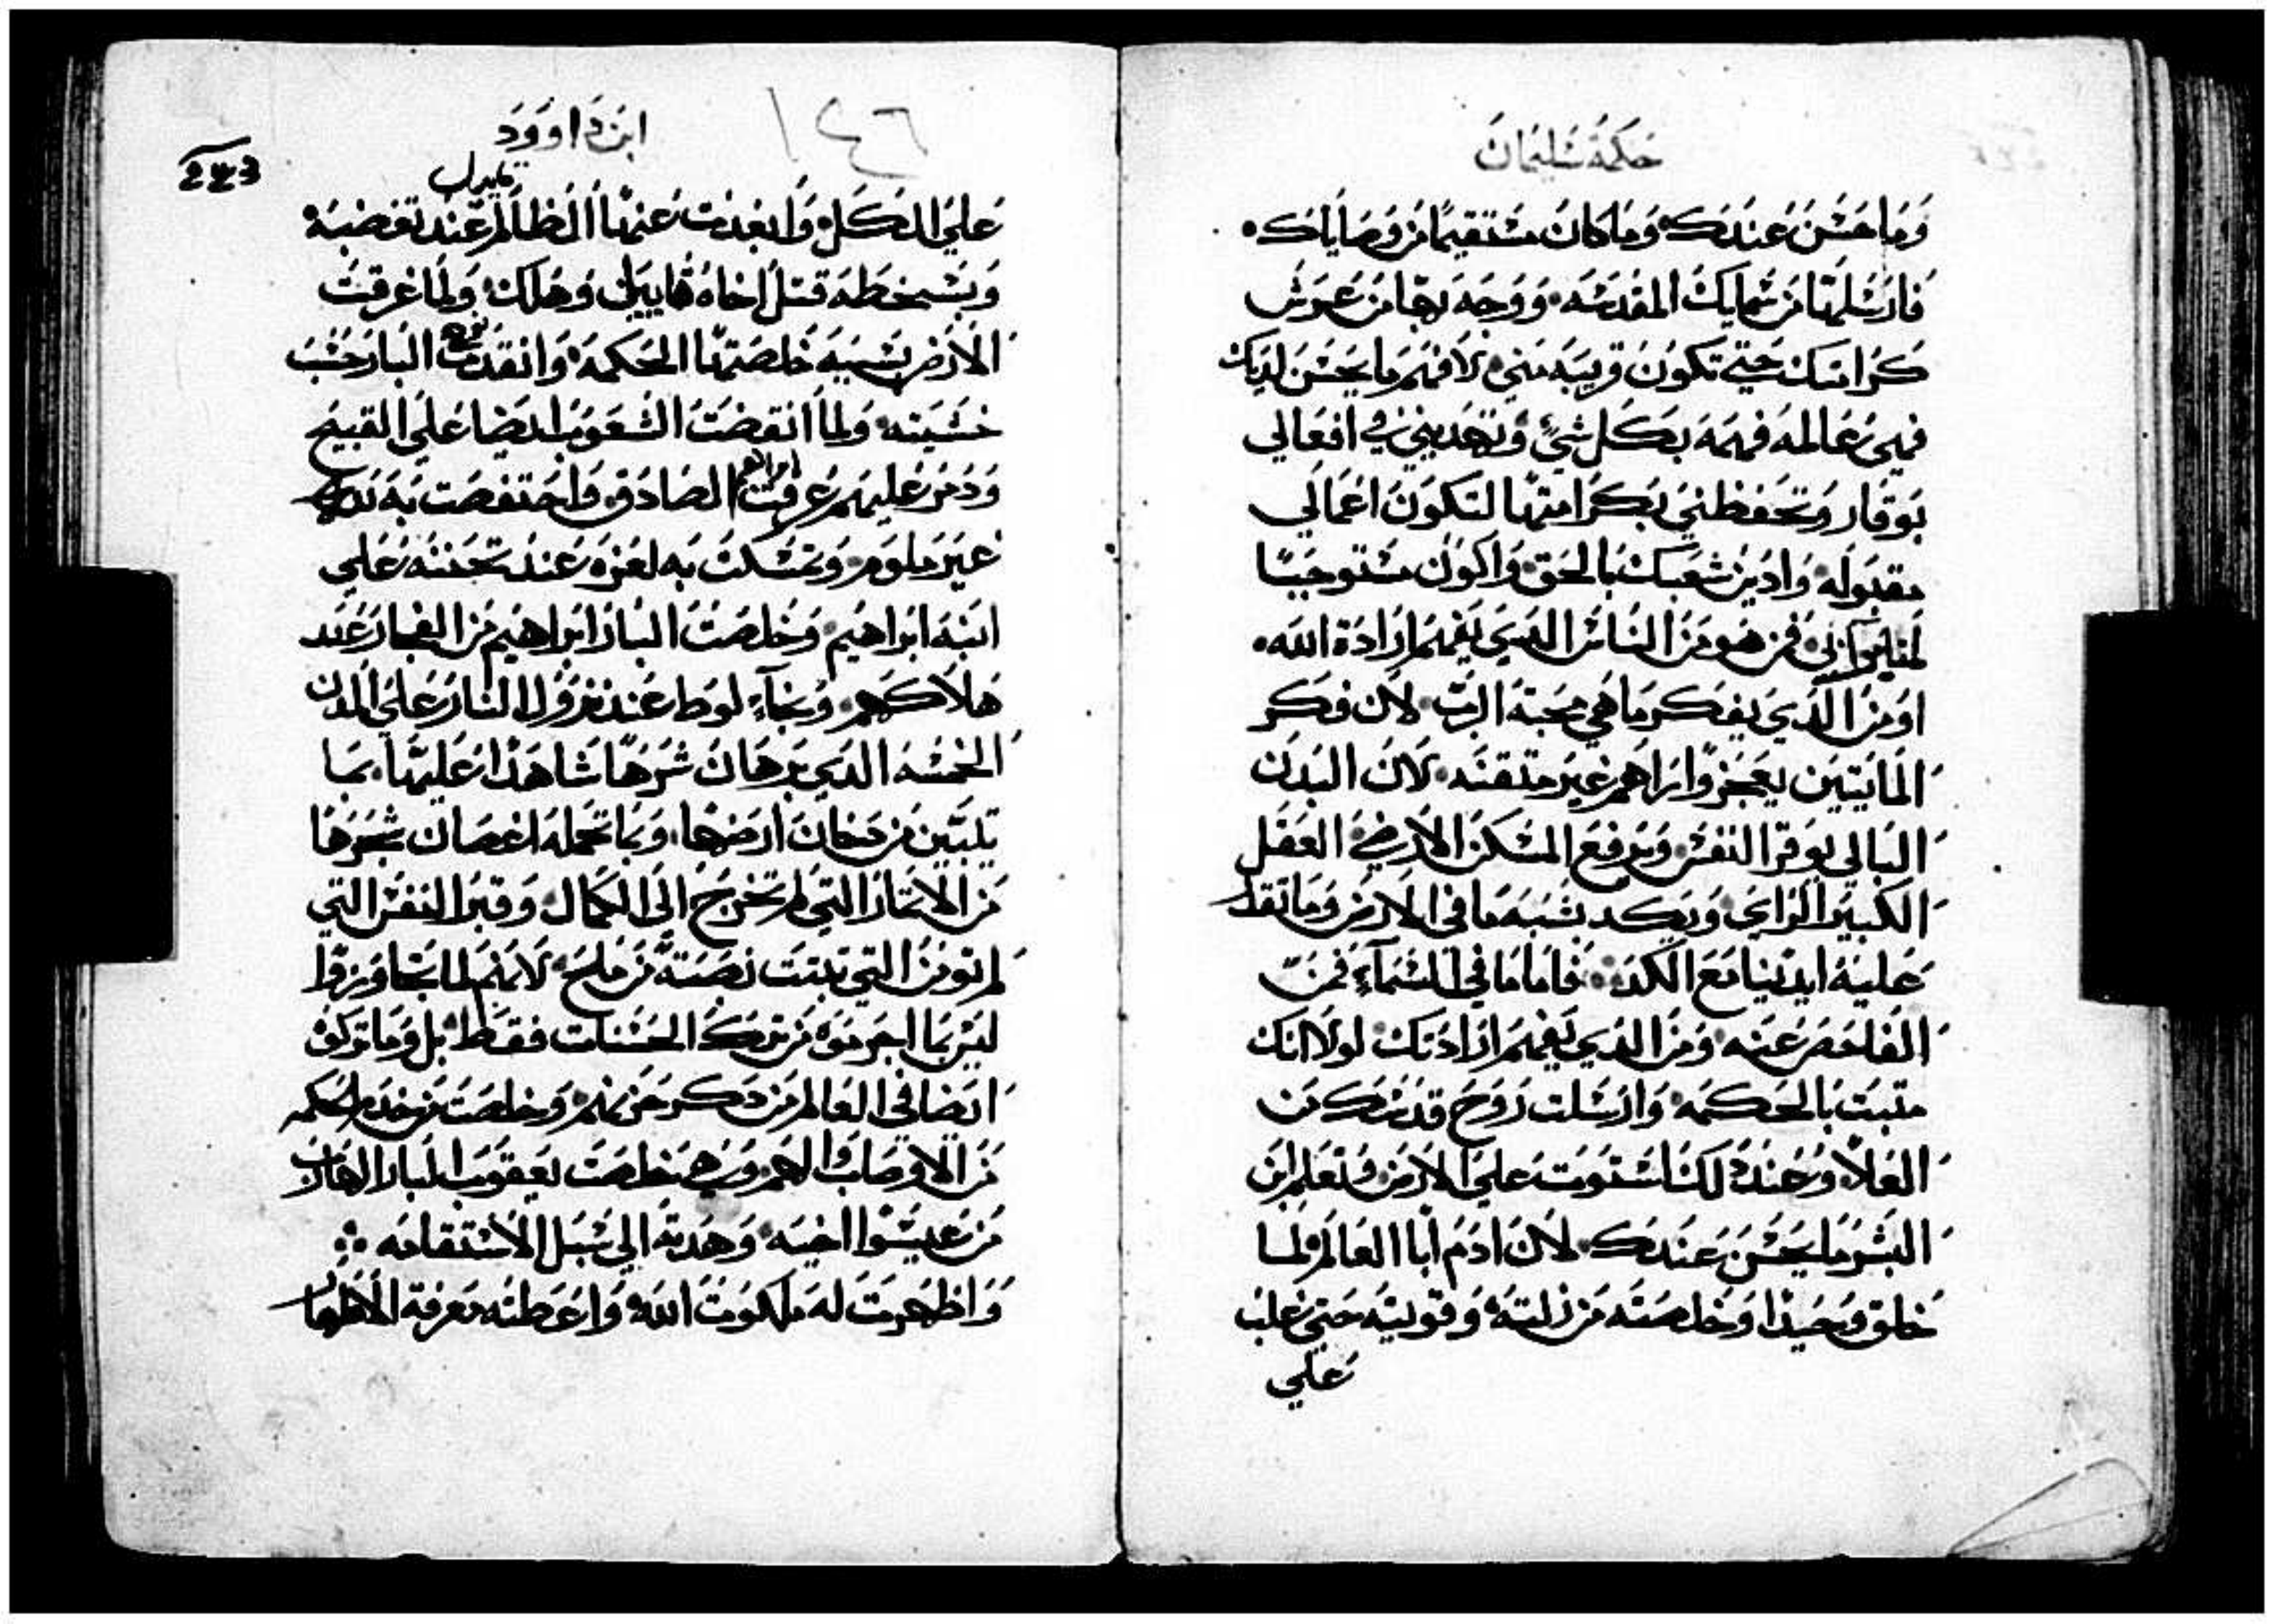 حكمة سليمان
وما حسن عندك وما كان مستقيما من وصاياك
فارسلها من سمايك المقدسه ووجه بها من عرش
كرامتك حتي تكون قريبه مني لافهم ما يحسن لديك
فهي عالمه فهمه بكل شي وتهديني في افعالي
بوقار وتحفظني بكرامتها لتكون اعمالي
مقبوله وادين شعبك بالحق واكون مستوجبا
فمن هو من الناس الدي يفهم ارادة الله
او من الدي يفكر ما هي محبة الرب لان فكر
المايتين يعجز واراهم غير متقنه لان البدن
البالي يوقر النفس ويرفع المسكن الارضي العقل
الكبير الراي وبكد نشبه ما في الارض وما نقدر
عليه ايدينا مع الكد فاما ما في السماء فمن
الفاحص عنه ومن الدي يفهم ارادتك لولا انك
متبت بالحكمه وارسلت روح قدسك من
العلا وعند دلك استوت علي الارض وتعلم ابن
البشر ما يحسن عندك لان ادم ابا العالم لما
خلق وحيدا وخلصته من زلته وقويته حتي غلب
علي
ابن داوود
١٤٦
243
علي الكل وابعدت عنها الظالم عند تغضبه
وبسخطه قتل اخاه قاييل وهلك ولما غرقت
الارض بسببه خلصتها الحكمه وانقدت نوح البار خشب
خشبته ولما انقضت الشعوب ايضا علي القبيح
ودمر عليهم عرفت ابراهيم الصادق واحتفصت به
غير ملوم وتمسكت به لعزه عند تحننه علي
ابنه ابراهيم وخلصت البار ابراهيم من الفجار عند
هلاكهم ونجاء لوط عند نزول النار علي المدن
الخمسه الدي برهان شرها شاهدا عليها بما
يلبتين من دخان ارضها وبما تحمله اغصان شجرها
من الاتمار التي لم تخرج الي الكمال وقبر النفس التي
لم تومن التي تبتت نصبة من ملح لانهم لما تجاوزوا
ليس بما اجرموه من ترك الحسنات فقط بل وما تركوه
ايضا في العالم من دكر حزنهم وخلصت من خدم الحكمه
من الاوصاب والهم وهي خلصت يعقوب البار الهارب
من عيسوا اخيه وهدته الي سبل الاستقامه
واظهرت له ملكوت الله واعطته معرفة الاطهار